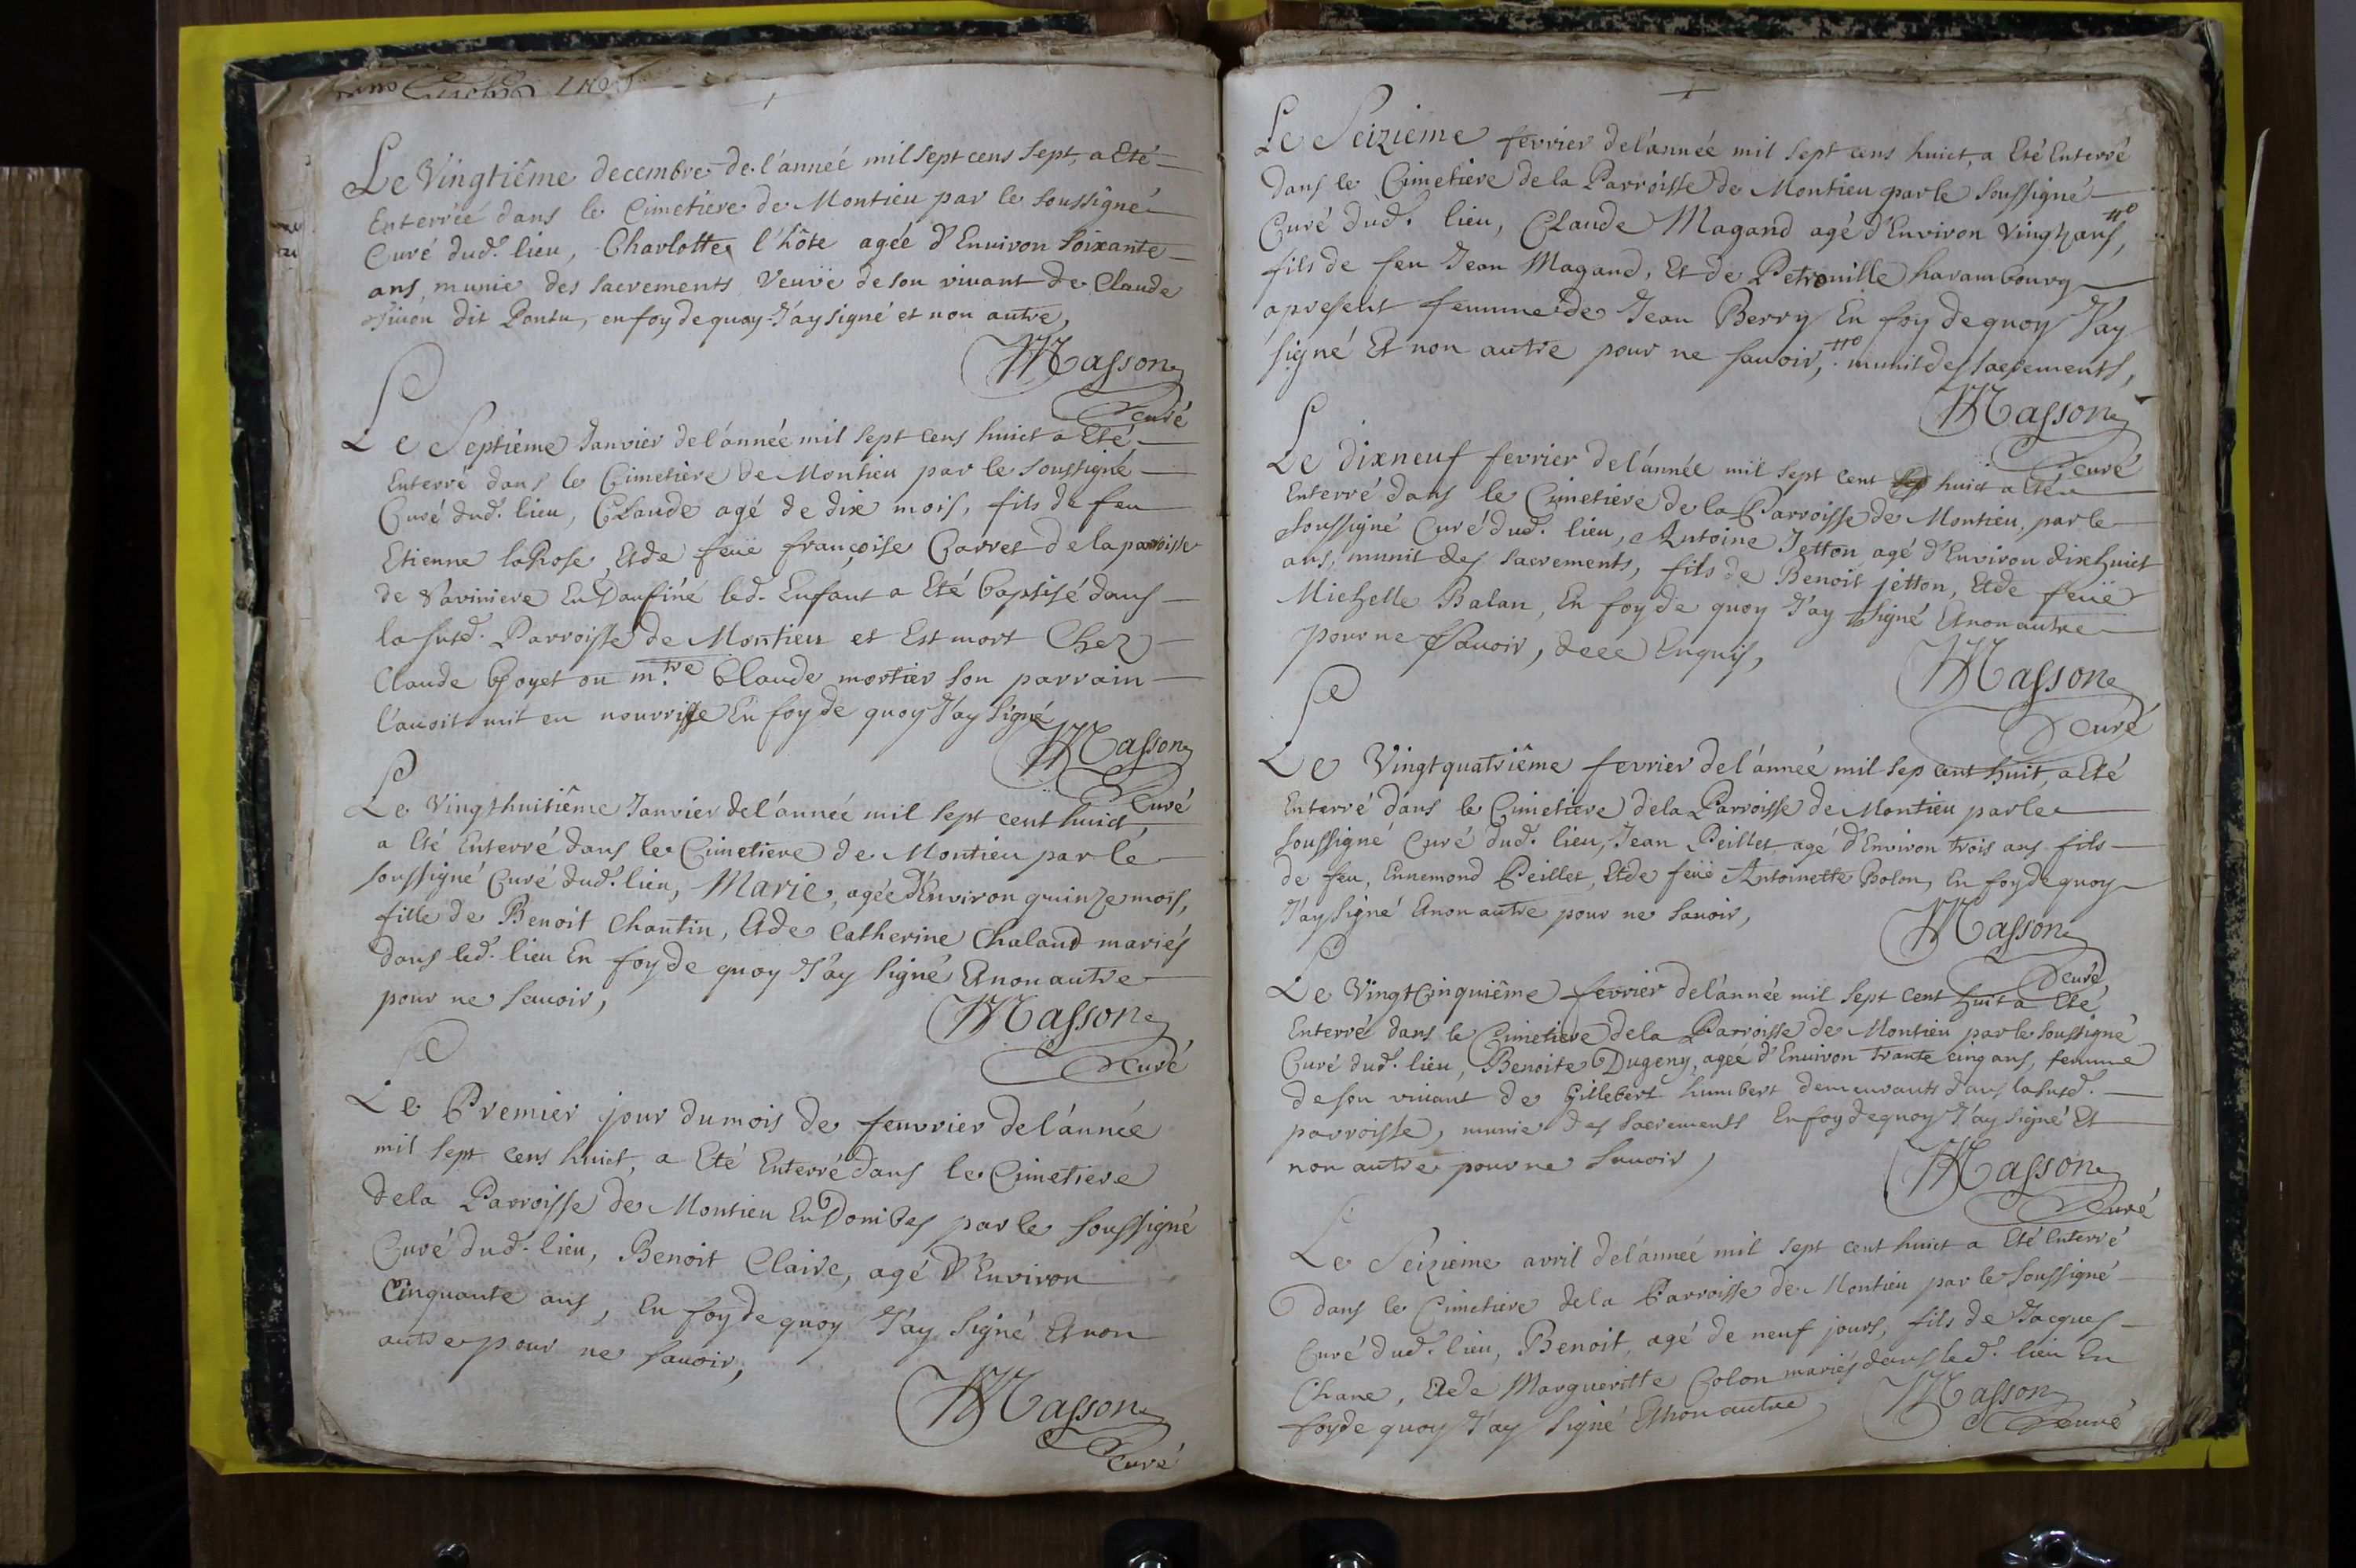 Le Vingtiême decembre de l'anneé mil sept cens sept, a Eté
Enterreé dans le Cimetiere de Montieu par le soussigné
Curé dud. lieu, Charlotte l'hôte agée d'Enuiron soixante
ans, munie des sacrements Veuve de son viuant de Claude
dit Pontu, en foy de quoy J'ay signé et non autre,
Masson
curé
Le Septiême Janvier de l'année mil sept cens huict a Eté
Enterré dans le Cimetiere de Montieu par le soussigné
Curé dud. lieu, Claude agé de dix mois, fils de feu
Etienne laRose, Et de feüe françoise Carret de la paroisse
de Saviniere En Daufiné led. Enfant a Eté baptisé dans
la susd. Parroisse de Montieu et Est mort Chez
Claude Goyet ou m.tre Claude mortier son parrain
l'auoit mit en nourrisse En foy de quoy J'ay signé
Masson
Curé
Le Vingthuitiême Janvier de l'anneé mil sept cent huict,
a Eté Enterré dans le Cimetiere de Montieu par le
soussigné Curé dud. lieu, Marie, agée d'Environ quinze mois,
fille de Benoit Chantin, Et de Catherine Chaland mariés
dans led. lieu En foy de quoy J'ay signé Et non autre
pour ne sauoir,
Masson
Curé
Le Premier jour du mois de feuvrier de l'année
mil sept cens huict, a Eté Enterré dans le Cimetiere
de la Parroisse de Montieu En Dombes par le soussigné
Curé dud. lieu, Benoit Claire, agé d'Environ
Cinquante ans, En foy de quoy J'ay signé Et non
autre pour ne sauoir,
Masson
Curé
Le Seizieme fevrier de l'anneé mil sept cens huict, a Eté Enterré
dans le Cimetiere de la Parroisse de Montieu par le soussigné
Curé dud. lieu, Claude Magand agé d'Environ vingt ans,
fils de feu Jean Magand, Et de Petronille harambourg
apresent femme de Jean Berry En foy de quoy J'ay
signé Et non autre pour ne sauoir, munit des sacrements,
Masson
curé
Le dixneuf fevrier de l'année mil sept cent huict a Eté
Enterré dans le Cimetiere de la Parroisse de Montieu, par le
soussigné Curé dud. lieu, Antoine Jetton agé d'Environ dixhuict
ans, munit des sacrements, fils de Benoit jetton, Et de feüe
Michelle Balan, En foy de quoy J'ay signé Et non autre
pour ne sauoir, Enquis,
Masson
Curé
Le Vingtquatriême fevrier de l'anneé mil sep cent huit, a Eté
Enterré dans le Cimetiere de la Parroisse de Montieu par le
soussigné Curé dud. lieu, Jean Peillet agé d'Environ trois ans fils
de feu, Ennemond Peillet, Et de feüe Antoinette Bolon, En foy de quoy
J'ay signé Et non autre pour ne sauoir,
Masson
Curé
Le VingtCinquiême fevrier de l'année mil sept cent huit a Eté
Enterré dans le Cimetiere de la Parroisse de Montieu par le soussigné
Curé dud. lieu, Benoite Dugeny, ageé d'Enuiron trante cinq ans, femme
de son viuant de Gillebert humbert demeurants dans la susd.
parroisse, munie des sacrements En foy de quoy J'ay signé Et
non autre pour ne sauoir,
Masson
Curé
Le Seizieme avril de l'anneé mil sept cent huict a Eté Enterré
dans le Cimetiere de la Parroisse de Montieu par le soussigné
Curé dud. lieu, Benoit, agé de neuf jours, fils de Jacques
Chane, Et de Margueritte Colon mariés dans led. lieu En
foy de quoy J'ay signé Et non autre,
Masson
Curé